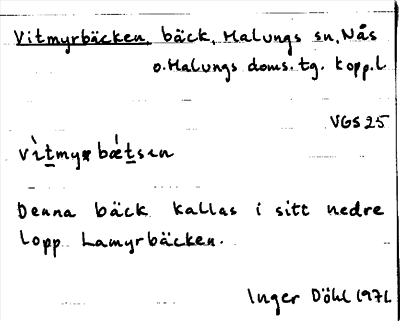 Vitmyrbäcken, bäck, Malungs sn, Nås
o. Malungs doms. tg. Kopp.l.
VGS 25
vìtmyr bǽtsɩn
Denna bäck kallas i sitt nedre
lopp Lamyrbäcken.
Inger Döhl 1971